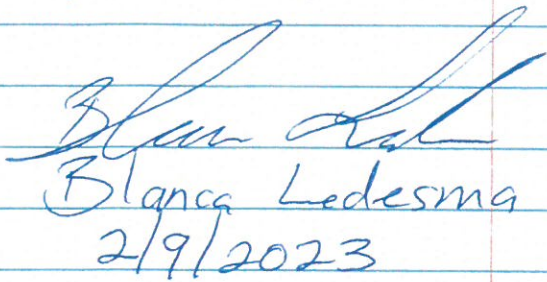 Blanca Ledesma
2/9/2023